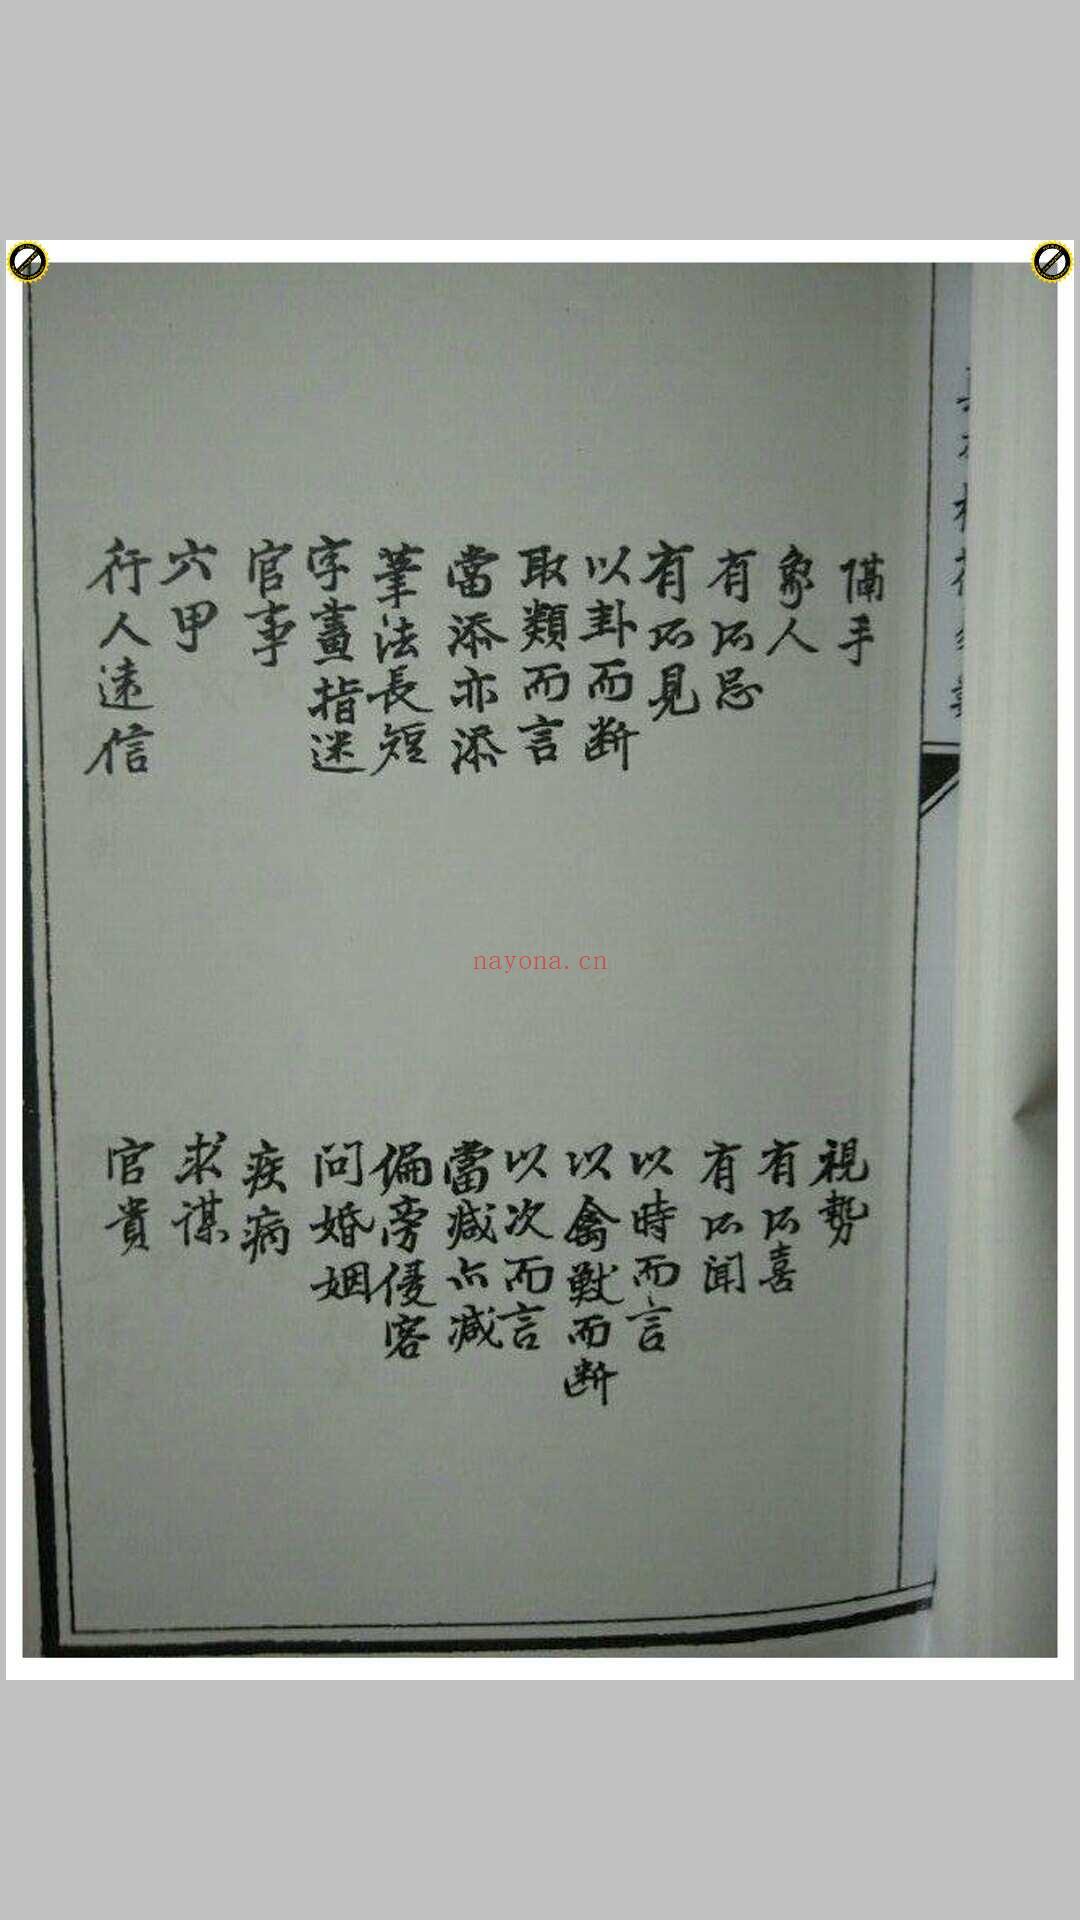 隔手
象人
有所忌
有所見
以卦而断
取類而言
當添亦添
筆法長短
字畫指迷
官事
六甲
行人遠信
視勢
有所喜
有所聞
以時而言
以禽獸而断
以次而言
當減亦減
偏旁侵客
問婚姻
疾病
求謀
官貴
nayona.cn